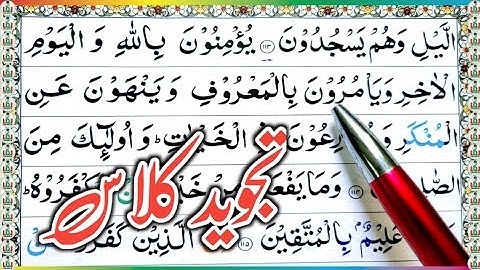 الَّيْلِ وَهُمْ يَسْجُدُوْنَ ۩ ﴿۱۱۳﴾ يُؤْمِنُوْنَ بِاللّٰهِ وَ الْيَوْمِ
الْاٰخِرِ وَيَاْمُرُوْنَ بِالْمَعْرُوْفِ وَيَنْهَوْنَ عَنِ
الْمُنْكَرِ الْخَيْرٰتِ ؕ وَ اُولٰٓئِكَ مِنَ
﴿۱۱۴﴾ وَمَا يُّكْفَرُوْهُ ؕ
عَلِيْمٌۢ بِالْمُتَّقِيْنَ ﴿۱۱۵﴾ الَّذِيْنَ
تجوید کلاس